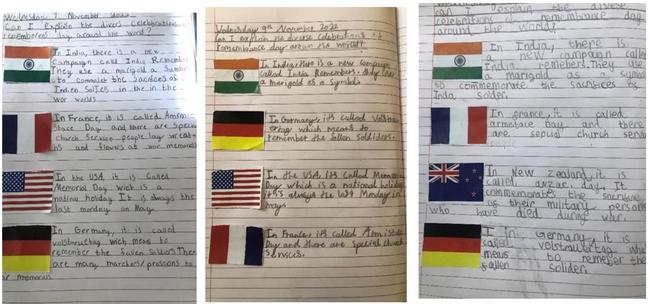 Wednesday 9 November 2022
Can I explain the divers celebrations
remembernce day around the world?
In India, there is a new
Campaign calld India Remember
They use a marigold a Symbol
to commulet the sacrifices of
Inden Soljes in the in the
wor worlds
In France, it is called Armi
Stace Day and there are special
church service people lay wreat
hs and flowers at war memorials
In the USA, it is Called
Memorial Day wich is a
natinu holiday It is always the
last monday on May.
In Germany, it is called
volstrauertag wich mens to
remember the falen Soldiers There
are many marches/prossons to
wor memorials
Wednesday 9th November 2022
Can I explain the diverse celebrations of
remembrance day around the world?
In India there is a new campaign
called India Remembers. they use
a marigold as a symbol
In Germany, it's called Volkstrau
ertag which means to
remember the fallen soldiers.
In the USA its called Memorial
Day which is a national holiday
it's always the last Monday in
mays
In France it's Called Armistace
Day and there are special church
services.
can I explain the divese
celebrations of remembrance day
around the world?
In India, there is
a new campaign calle
India remembers. They use
a marigold as symbol
to commemorate the sacrifices by
India solder.
In france, it is called
armastace day and there
are sepcul church servic
In New zealand, it is
called anzac day. It
commemorate the sacrifice
of their military person
who have died during war.
In Germany, it is
called volstrautertag whe
means to remeber the
fallen solider.